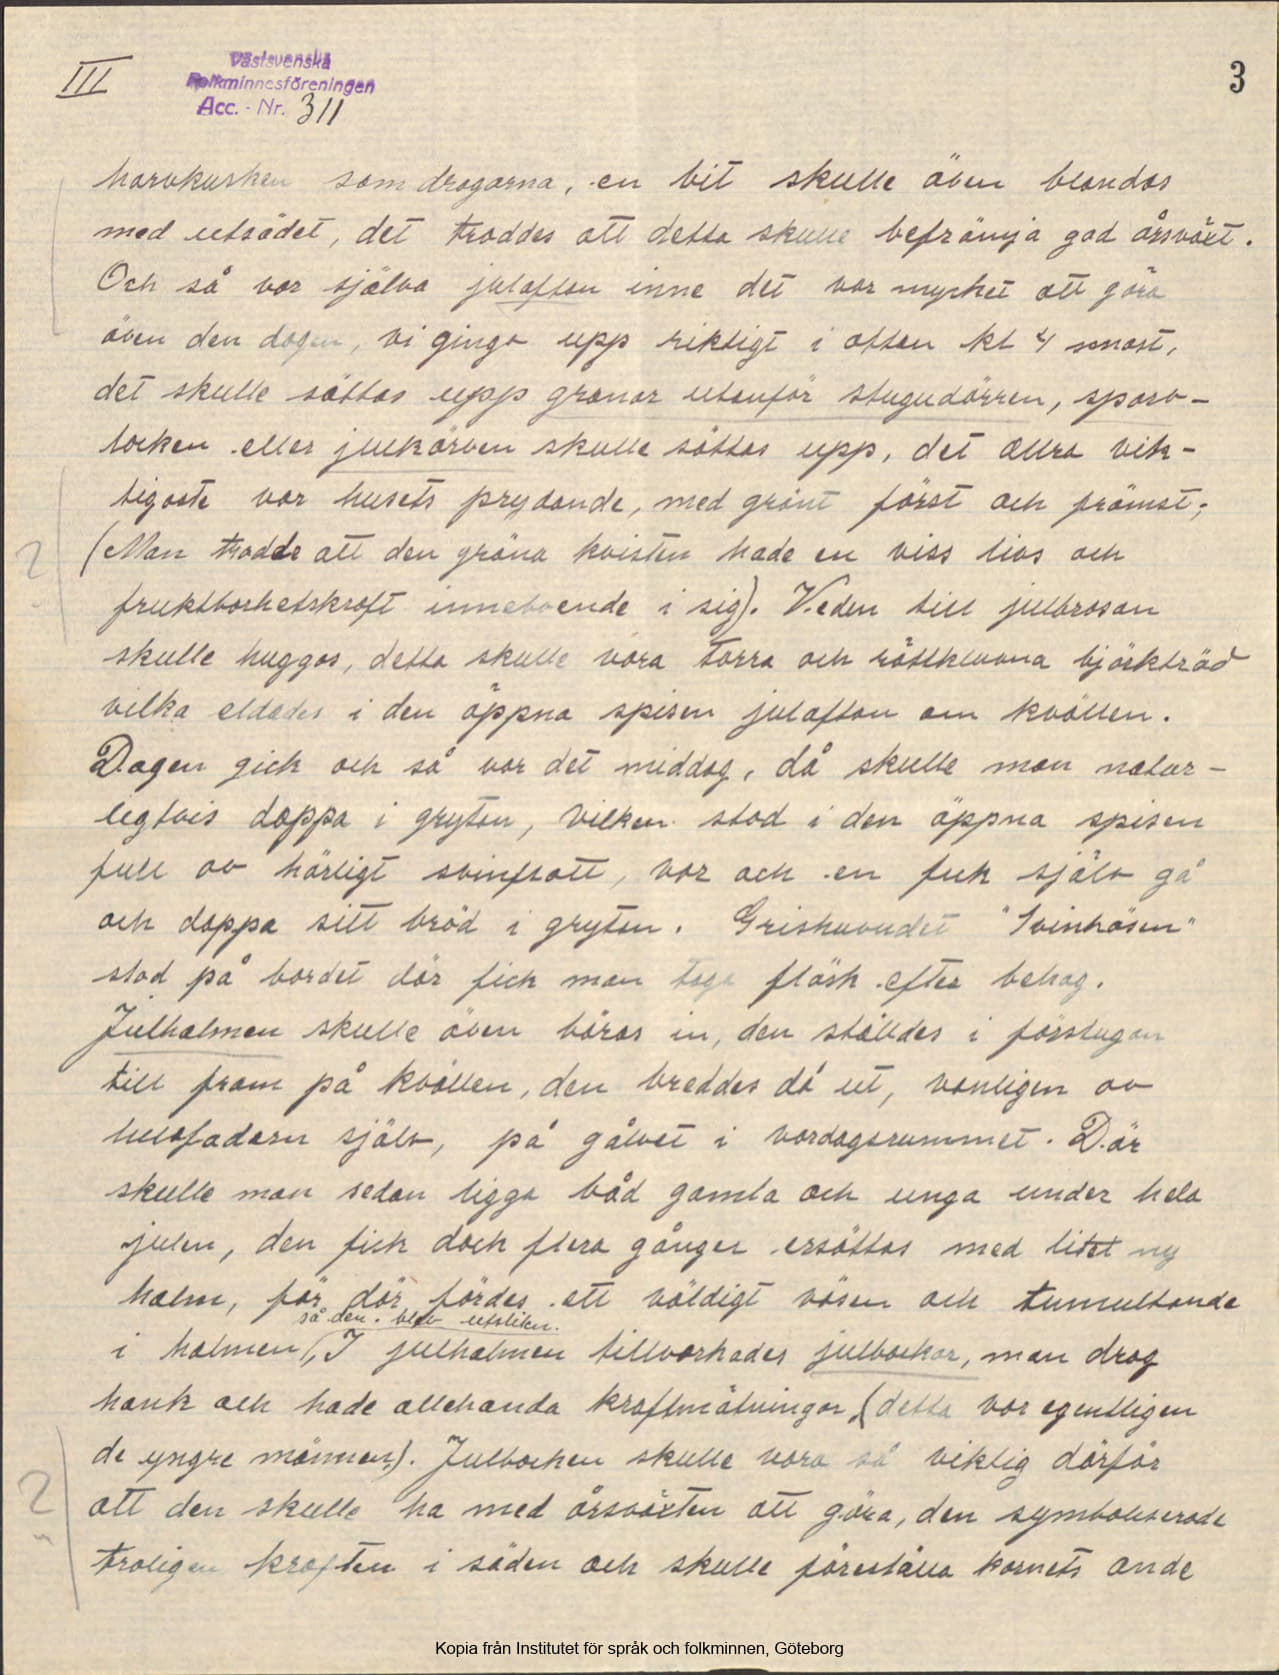 III
Västsvenska
Folkminnesföreningen
Acc. - Nr. 311
3
harvkusken som dragarna, en bit skulle även blandas
med utsädet, det troddes att detta skulle befrämja god årsväxt.
Och så var själva julafton inne det var mycket att göra
även den dagen, vi gingo upp riktigt i ottan kl 4 senast,
det skulle sättas upp granar utanför stugudörren, sparv-
tocken eller julkärven skulle sättas upp, det allra vik-
tigaste var husets prydande, med grönt först och främst;
(Man trodde att den gröna kvisten hade en viss livs och
fruktbarhetskraft inneboende i sig). Veden till julbrasan
skulle huggas, detta skulle vara torra och rättkluvna björkträd
vilka eldades i den öppna spisen julafton om kvällen.
Dagen gick och så var det middag, då skulle man natur-
ligtvis doppa i grytan, vilken stod i den öppna spisen
full av härligt svinflott, var och en fick själv gå
och doppa sitt bröd i grytan. Grishuvudet "Svinhösen"
stod på bordet där fick man taga fläsk efter behag.
Julhalmen skulle även bäras in, den ställdes i förstugan
till fram på kvällen, den breddes då ut, vanligen av
husfadern själv, på gålvet i vardagsrummet. Där
skulle man sedan ligga båd gamla och unga under hela
julen, den fick dock flera gånger ersättas med litet ny
halm, för där fördes ett väldigt väsen och tumultande
så den blev utsliten.
i halmen, I julhalmen tillverkades julbockar, man drog
hank och hade allehanda kraftmätningar, (detta var egentligen
de yngre männen). Julbocken skulle vara så viktig därför
att den skulle ha med årsväxten att göra, den symboliserade
troligen kraften i säden och skulle föreställa kornets ande
Kopia från Institutet för språk och folkminnen, Göteborg